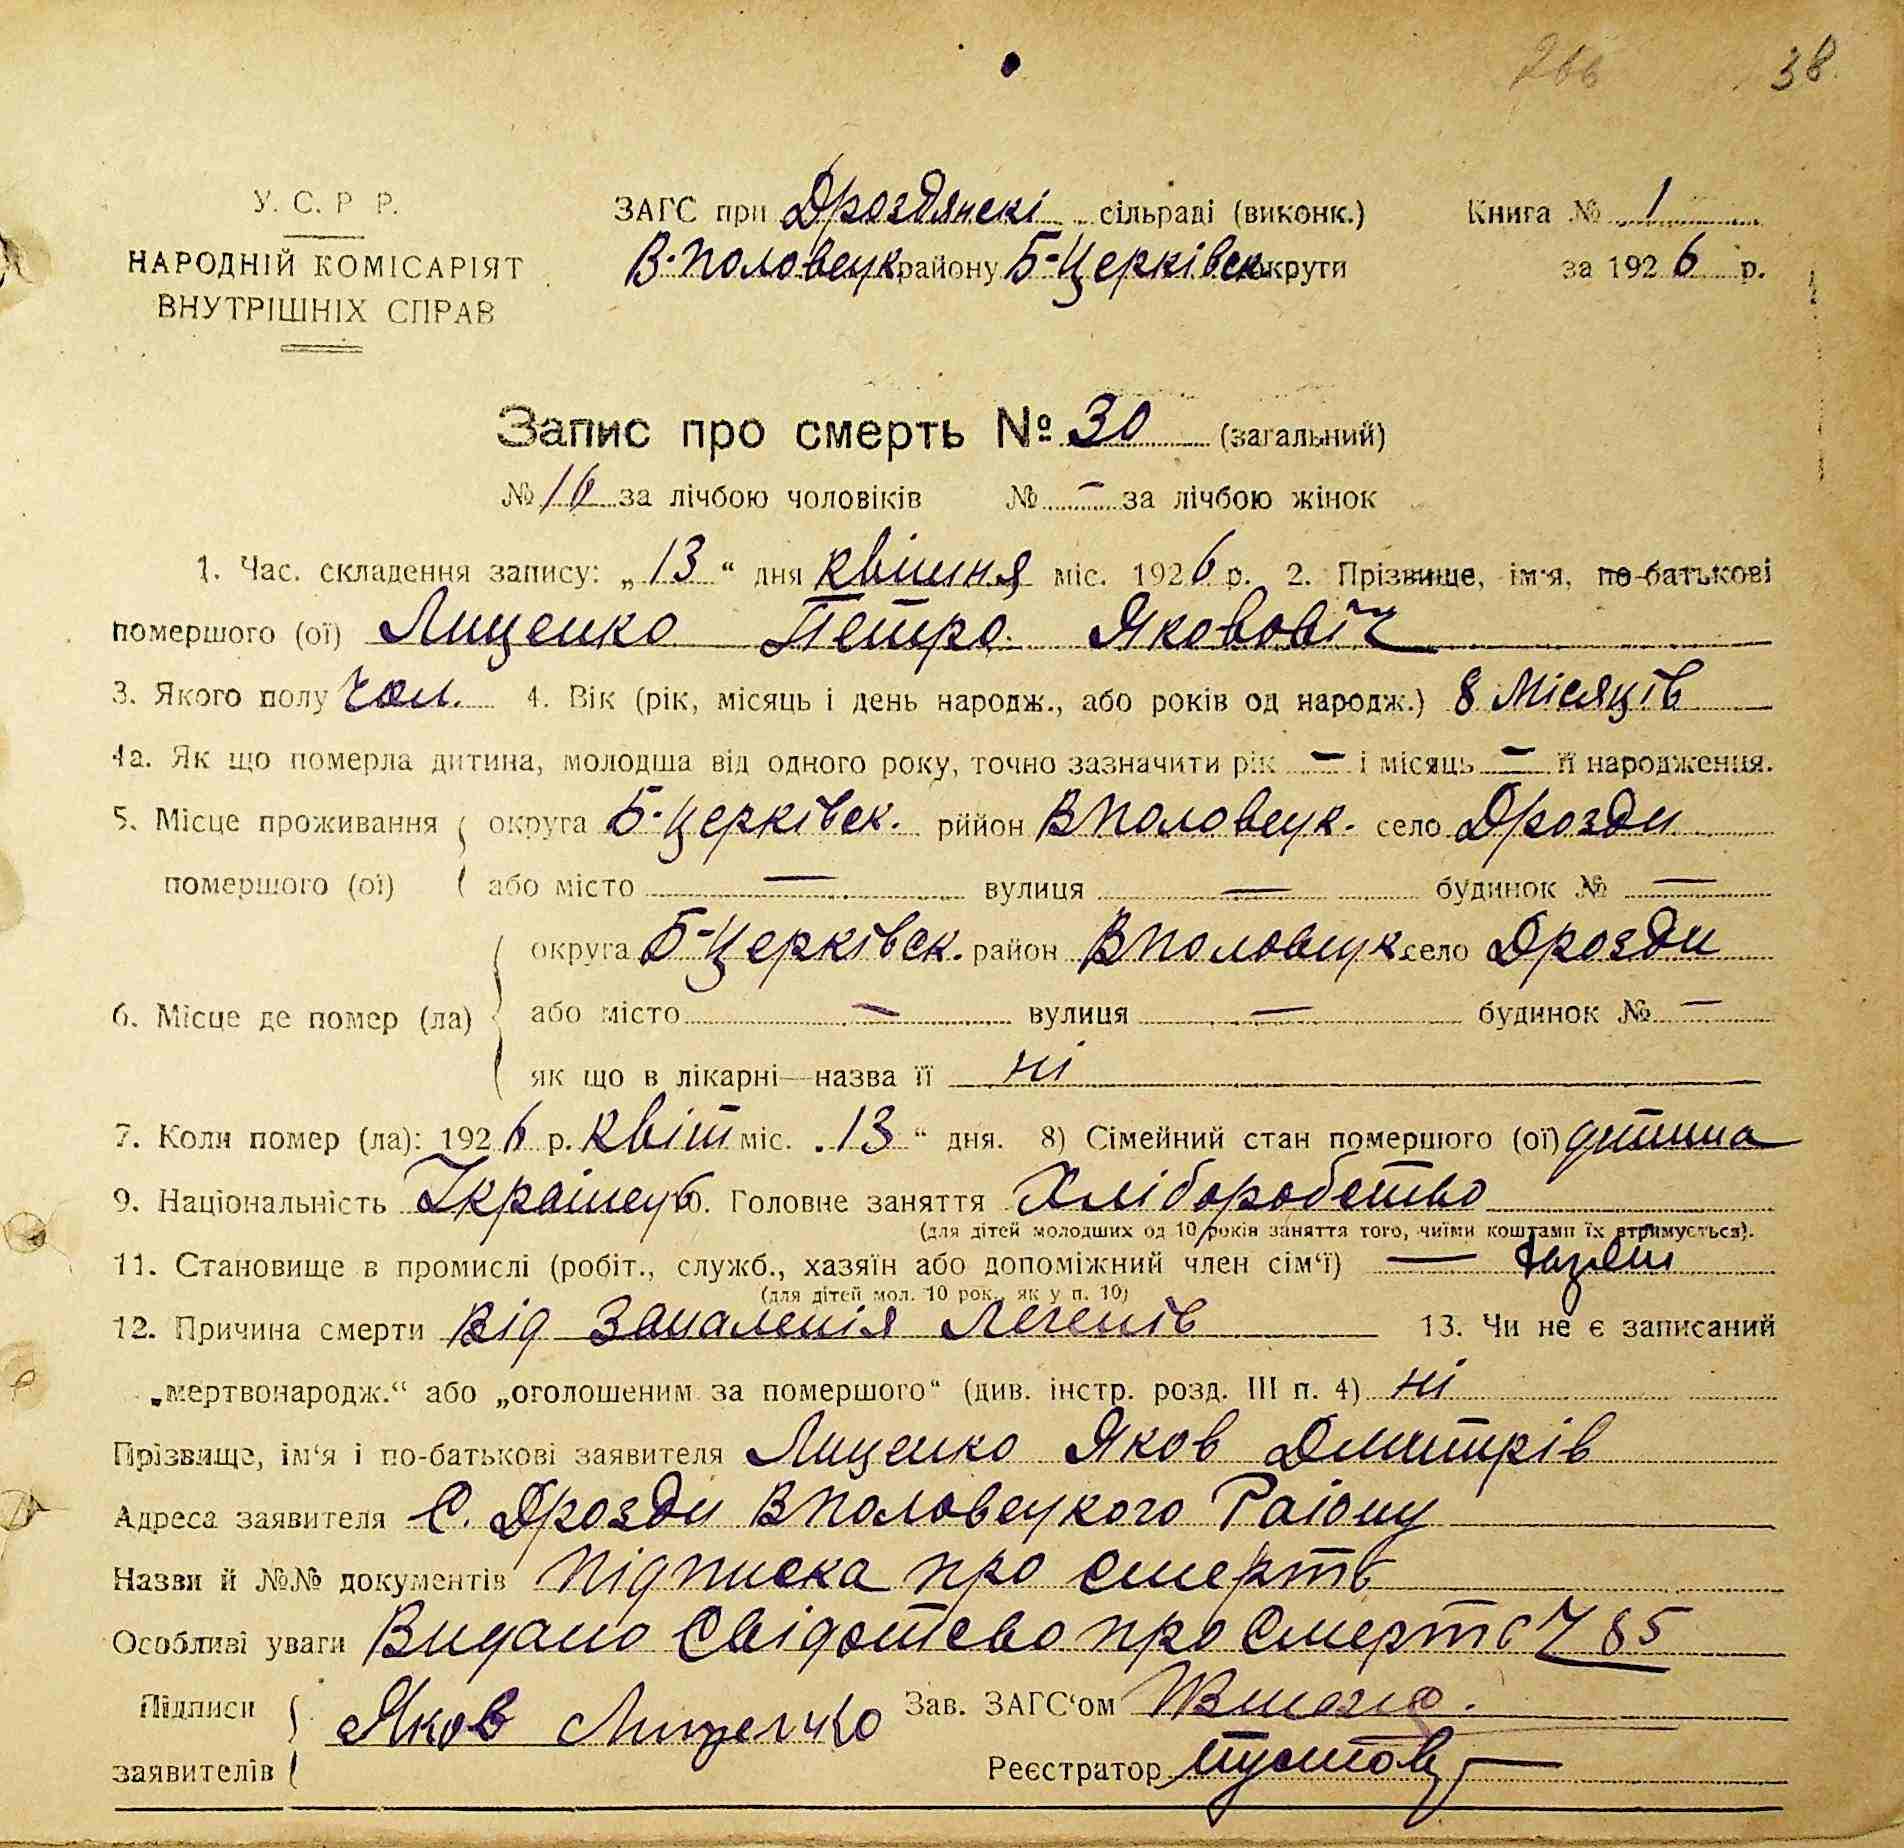 38
У. С. Р Р.
НАРОДНІЙ КОМІСАРІЯТ
ВНУТРІШНІХ СПРАВ
ЗАГС при Дроздянскі сільраді (виконк.)
В-Половецк району Б-Церківск округи
Книга № 1
за 1926 р.
Запис про смерть № 30 (загальний)
№ 16 за лічбою чоловіків № — за лічбою жінок
1. Час. складення запису: „13“ дня квітня міс. 1926 р. 2. Прізвище, ім‘я, по-батькові
помершого (ої) Лиценко Петро Якововіч
3. Якого полу чол. 4. Вік (рік, місяць і день народж., або років од народж.) 8 Місяців
4а. Як що померла дитина, молодша від одного року, точно зазначити рік — і місяць — її народження.
5. Місце проживання округа Б-Церківск. рййон ВПоловецк. село Дрозди
помершого (ої) або місто — вулиця — будинок № —
округа Б-Церківск. район ВПоловецк село Дрозди
6. Місце де помер (ла) або місто — вулиця — будинок № —
як що в лікарні—назва її ні
7. Коли помер (ла): 1926 р. квіт міс. „13“ дня. 8) Сімейний стан помершого (ої) дитина
9. Національність Українець 10. Головне заняття Хліборобство
(для дітей молодших од 10 років заняття того, чиїми коштами їх втримується).
11. Становище в промислі (робіт., служб., хазяїн або допоміжний член сім‘ї) —
(для дітей мол. 10 рок., як у п. 10)
12. Причина смерти Від Запаленія Легенів 13. Чи не є записаний
„мертвонародж.“ або „оголошеним за помершого“ (див. інстр. розд. III п. 4) ні
Прізвище, ім‘я і по-батькові заявителя Лиценко Яков Дмитрів
Адреса заявителя С. Дрозди ВПоловецкого Раіону
Назви й №№ документів Підписка про смерть
Особливі уваги Видано Свідотство про Смерть Ч 85
Підписи заявителів Яков Лиценко
Зав. ЗАГС‘ом
Реєстратор